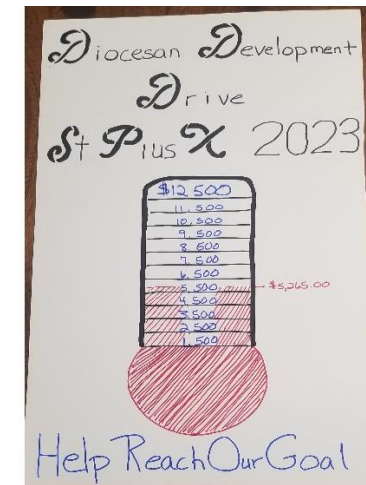 Diocesan Development
Drive
St Pius X 2023
$12,500
11,500
10,500
9,500
8,500
7,500
6,500
5,500
$5,265.00
4,500
3,500
2,500
1,500
Help Reach Our Goal